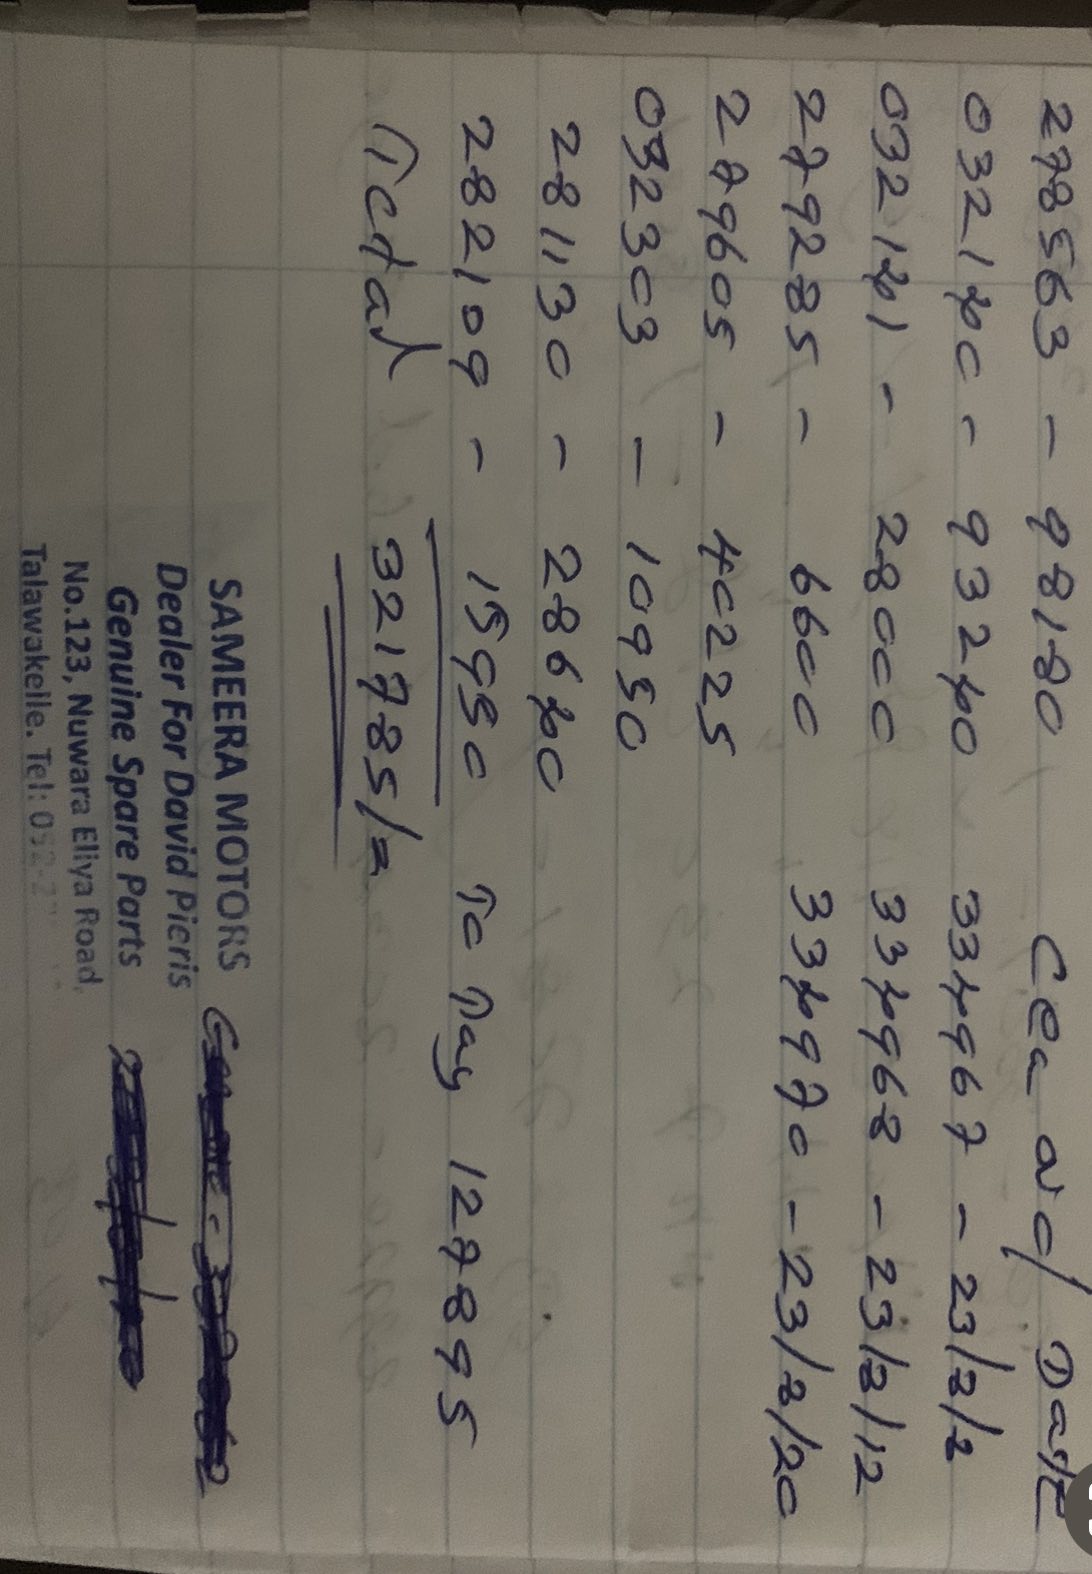 278563 - 98180 Date
032140 - 93240 334967 - 23/3/3
032141 - 28000 334968 - 23/3/12
279285 - 6600 334970 - 23/3/20
279605 - 40225
032303 - 10950
281130 - 28640
282109 - 15950 To Day 127895
Total 321785/=
SAMEERA MOTORS
Dealer For David Pieris
Genuine Spare Parts
No.123, Nuwara Eliya Road,
Talawakelle. Tel: 052-2